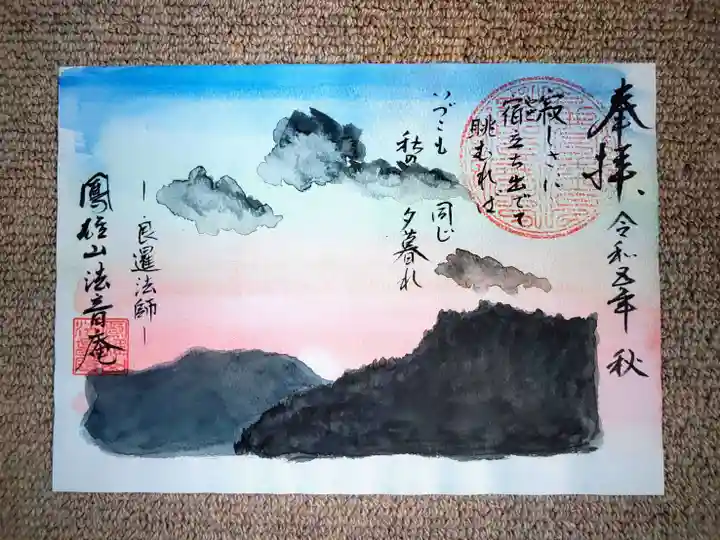 奉拝、
令和五年 秋
寂しさに
宿立ち出でて
眺むれば
いづこも
秋の
同じ
夕暮れ
―良暹法師―
鳳雄山法音庵